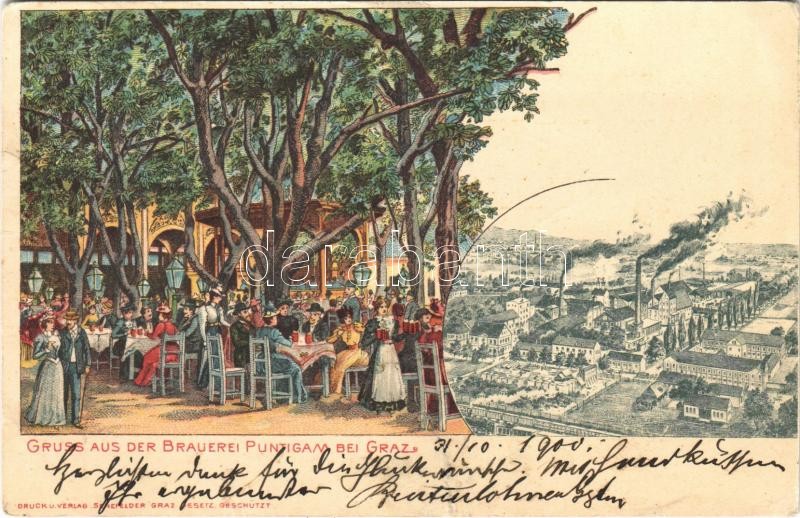 darabanth
GRUSS AUS DER BRAUEREI PUNTIGAM BEI GRAZ. 31/10. 1900.
Herzlichsten Dank für die Glückwünsche. Mit Handküssen
Ihr ergebenster
DRUCK U. VERLAG SENEFELDER GRAZ GESETZ. GESCHÜTZT